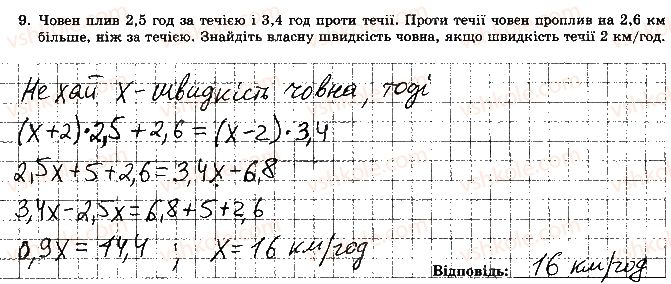 9. Човен плив 2,5 год за течією і 3,4 год проти течії. Проти течії човен проплив на 2,6 км
більше, ніж за течією. Знайдіть власну швидкість човна, якщо швидкість течії 2 км/год.
Нехай х - швидкість човна, тоді
(х+2)·2,5+2,6=(х-2)·3,4
2,5х+5+2,6=3,4х-6,8
3,4х-2,5х=6,8+5+2,6
0,9х=14,4 ; х=16 км/год
Відповідь: 16 км/год